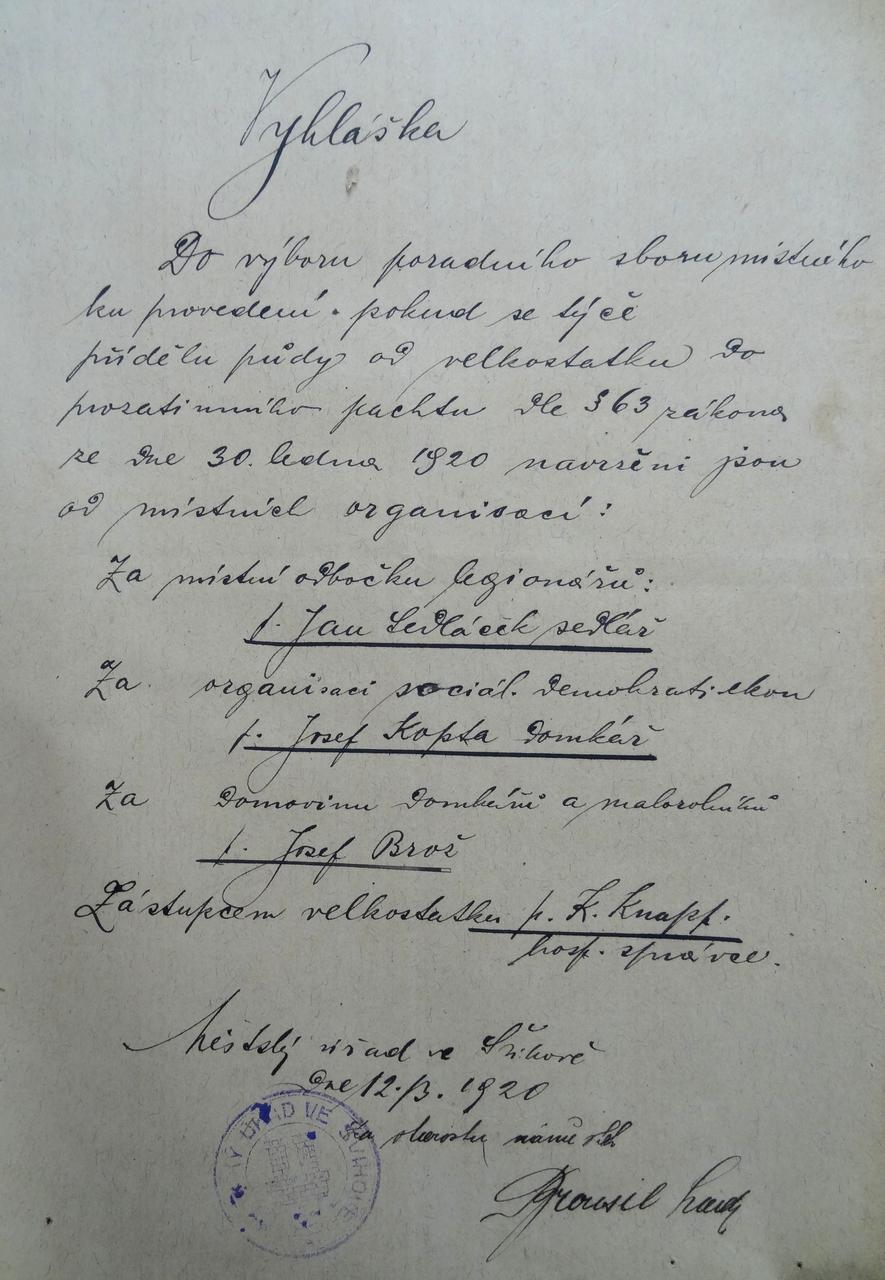 Vyhláška
Do výboru poradního sboru místného
ku provedení. pokud se týčě
přídělu půdy od velkostatku do
prozatimního pachtu dle § 63 zákona
ze dne 30. ledna 1920 navrženi jsou
od místních organisací:
Za místní odbočku legionářů:
p. Jan Sedláček sedlář
Za organisaci sociál. demokratickou
p. Josef Kopta domkář
Za Domovinu domkářů a malorolníků
p. Josef Brož
Zástupcem velkostatku p. K. Knapp.
hosp. správce.
Městský úřad ve Švihově
dne 12./3. 1920
za starostu náměstek
ÚŘAD VE ŠVIHOVĚ
Brousil